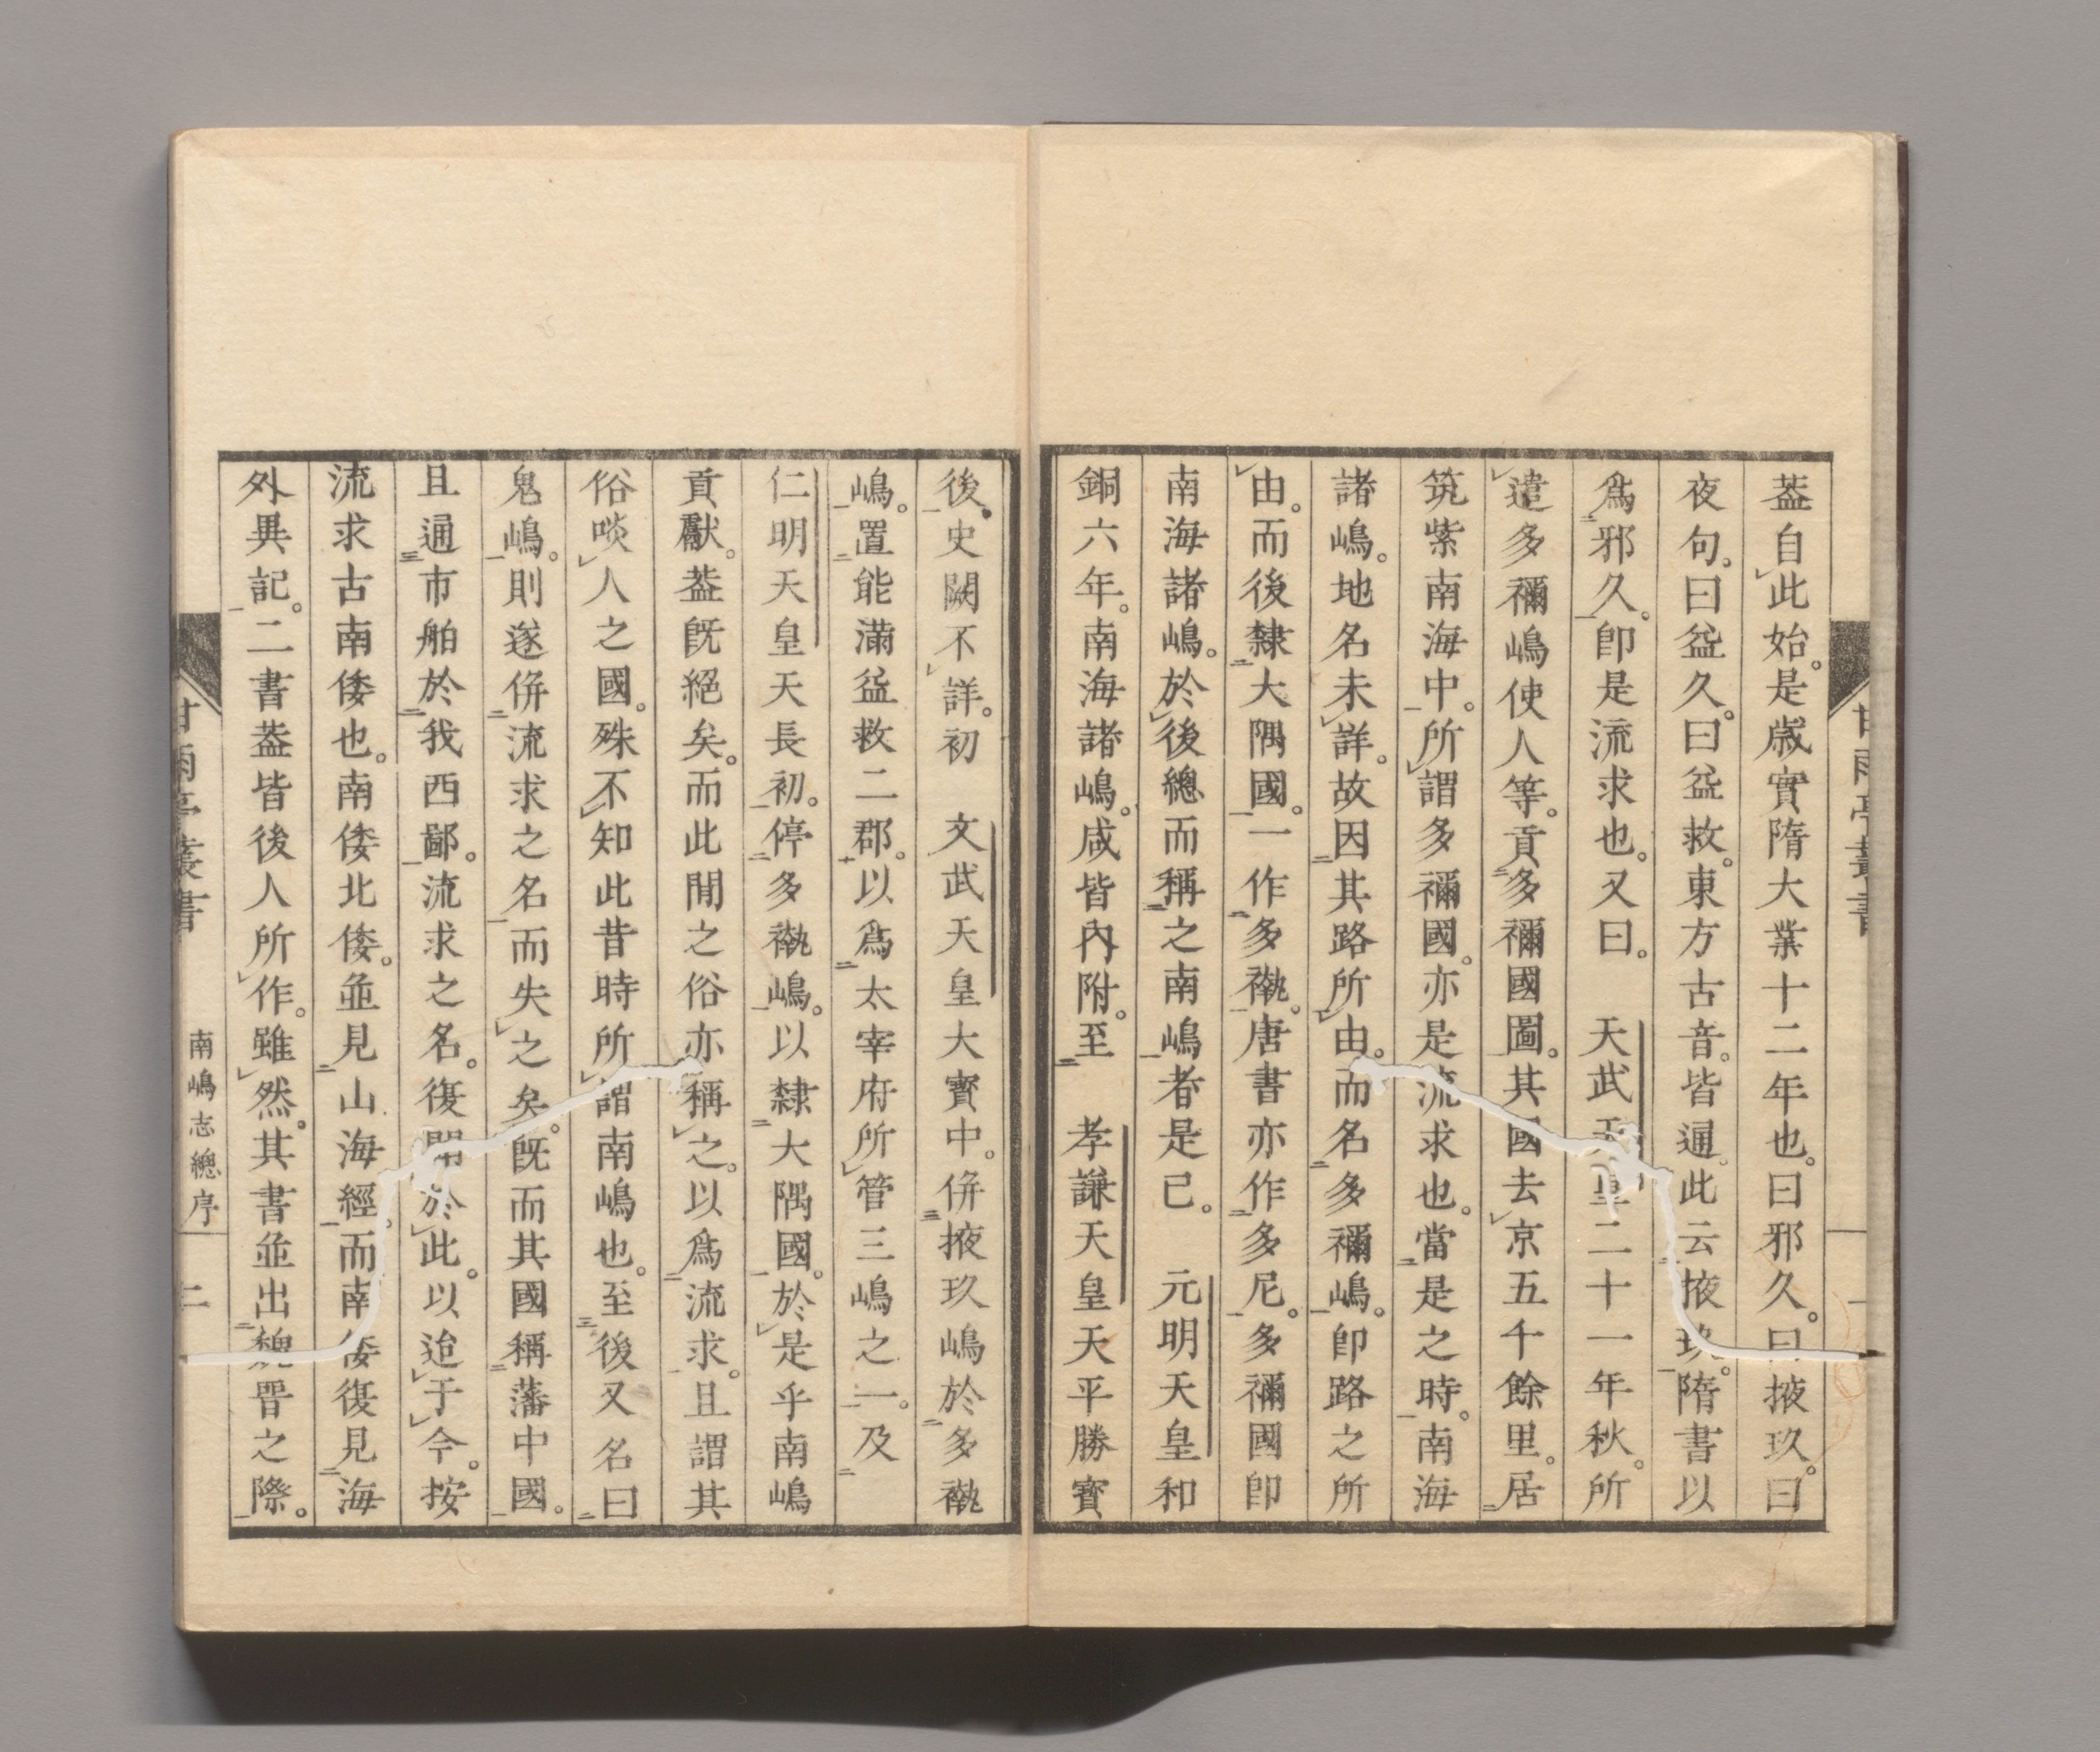 葢自此始。是歲實隋大業十二年也。曰邪久。曰掖玖。曰
夜句。曰益久。曰益救。東方古音。皆通。此云掖玖。隋書以
爲邪久。卽是流求也。又曰。　天武天皇二十一年秋。所
遣多禰嶋使人等。貢多禰國圖。其國去京五千餘里。居
筑紫南海中。所謂多禰國。亦是流求也。當是之時。南海
諸嶋。地名未詳。故因其路所由。而名多禰嶋。卽路之所
由。而後隸大隅國。一作多褹。唐書亦作多尼。多禰國卽
南海諸嶋。於後總而稱之南嶋者是已。　元明天皇和
銅六年。南海諸嶋。咸皆內附。至　孝謙天皇天平勝寶
後。史闕不詳。初　文武天皇大寶中。併掖玖嶋於多褹
嶋。置能滿益救二郡。以爲太宰府所管三嶋之一。及
仁明天皇天長初。停多褹嶋。以隸大隅國。於是乎南嶋
貢獻。葢旣絕矣。而此閒之俗亦稱之。以爲流求。且謂其
俗啖人之國。殊不知此昔時所謂南嶋也。至後又名曰
鬼嶋。則遂併流求之名而失之矣。旣而其國稱藩中國。
且通市舶於我西鄙。流求之名。復聞於此。以迨于今。按
流求古南倭也。南倭北倭。竝見山海經。而南倭復見海
外異記。二書葢皆後人所作。雖然。其書竝出魏晋之際。
甘雨亭叢書
南嶋志總序
二
甘雨亭叢書